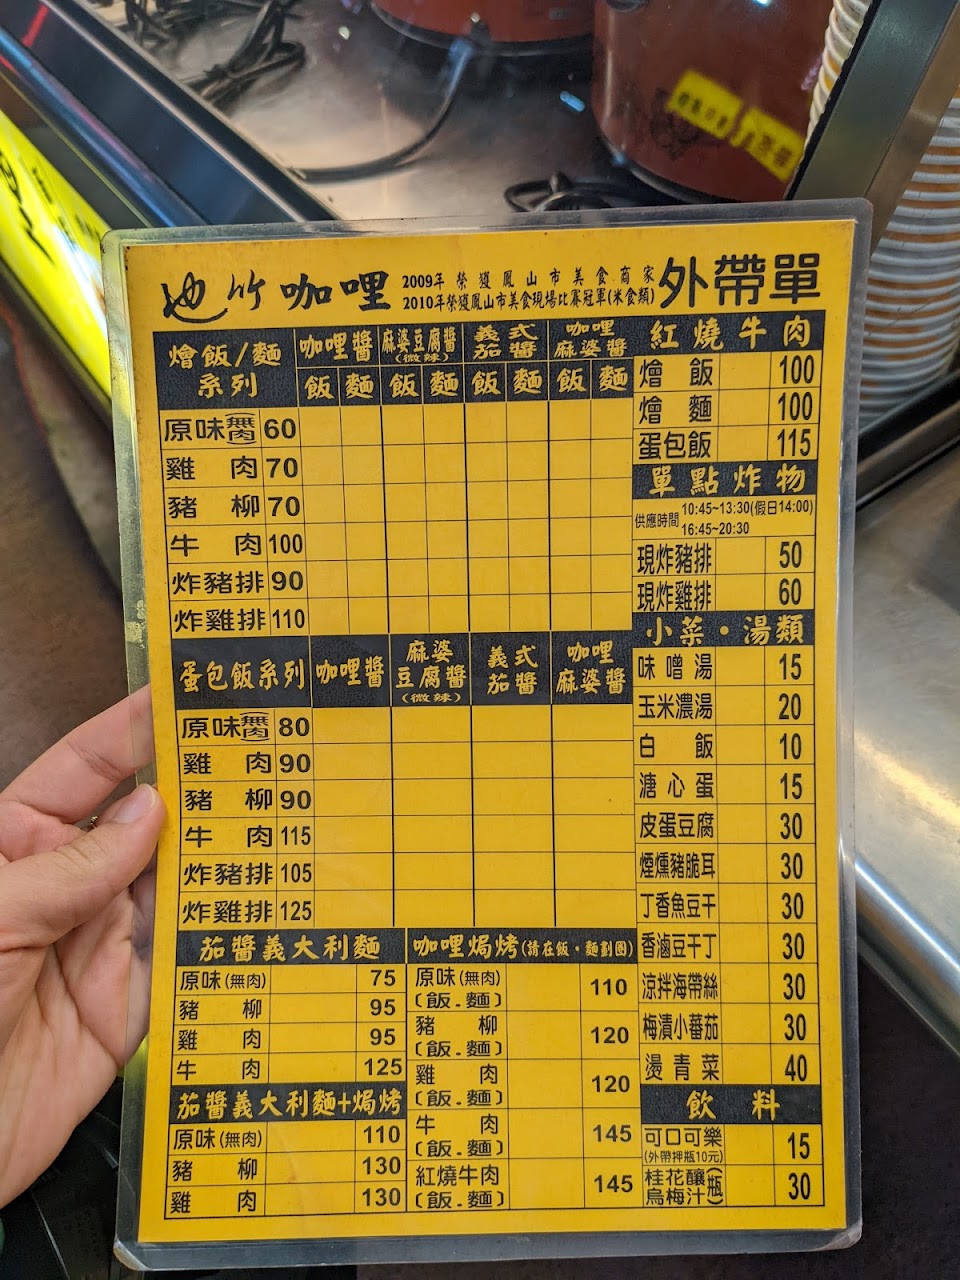 池竹咖哩
2009年榮獲鳳山市美食商家
2010年榮獲鳳山市美食現場比賽冠軍(米食類)
外帶單
燴飯/麵系列 咖哩醬 麻婆豆腐醬(微辣) 義式茄醬 咖哩麻婆醬
飯 麵 飯 麵 飯 麵 飯 麵
原味(無肉) 60
雞肉 70
豬柳 70
牛肉 100
炸豬排 90
炸雞排 110
蛋包飯系列 咖哩醬 麻婆豆腐醬(微辣) 義式茄醬 咖哩麻婆醬
原味(無肉) 80
雞肉 90
豬柳 90
牛肉 115
炸豬排 105
炸雞排 125
茄醬義大利麵
原味(無肉) 75
豬柳 95
雞肉 95
牛肉 125
茄醬義大利麵+焗烤
原味(無肉) 110
豬柳 130
雞肉 130
咖哩焗烤(請在飯・麵劃圈)
原味(無肉)(飯.麵) 110
豬柳(飯.麵) 120
雞肉(飯.麵) 120
牛肉(飯.麵) 145
紅燒牛肉(飯.麵) 145
紅燒牛肉
燴飯 100
燴麵 100
蛋包飯 115
單點炸物
供應時間 10:45~13:30(假日14:00)
16:45~20:30
現炸豬排 50
現炸雞排 60
小菜・湯類
味噌湯 15
玉米濃湯 20
白飯 10
溏心蛋 15
皮蛋豆腐 30
煙燻豬脆耳 30
丁香魚豆干 30
香滷豆干丁 30
涼拌海帶絲 30
梅漬小蕃茄 30
燙青菜 40
飲料
可口可樂 15
(外帶押瓶10元)
桂花釀烏梅汁(瓶) 30